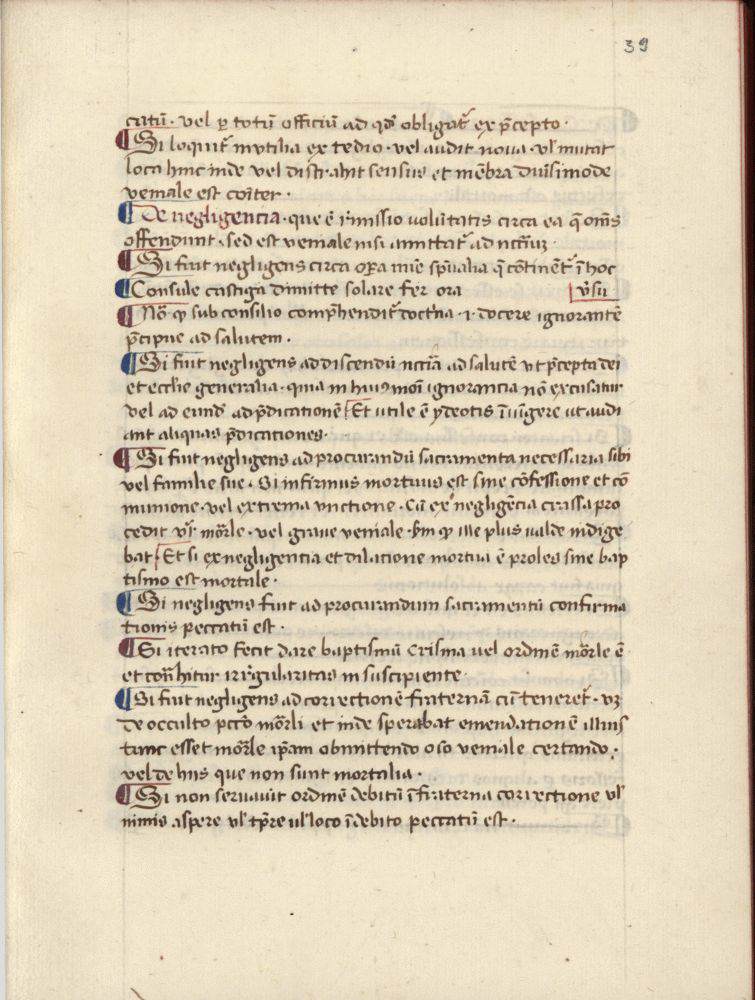 39
ciatū · vel p totū officiū ad qd' obligat̄ ex p̄cepto ·
¶ Si loquit̄ inutilia ex tedio · vel audit noua · vl' mutat
loca hinc inde vel distrahit sensus et mēbra diu͛simode
veniale est co͞iter ·
¶ De negligencia · que ē r͛missio volūtatis circa ea q̄ om̄s
offendunt · sed est veniale nisi ad
¶ Si fuit negligens circa op̄a mīe sp̄ualia q̄ cōtinent̄ ī hoc
¶ Consule castiga dimitte solare fer ora v͛su
¶ Nō ꝙ sub consilio comp̄hendit̄ doct͛na · ı · docere ignorantē
p̄cipue ad salutem ·
¶ Si fuit negligens addiscendū nccīa ad salutē vt p̄cepta dei
et ecclīe generalia · quia in huiusmōi ignorancia nō excusatur
vel ad eund' ad p̄dicationē Et utile ē ydeotis īiūgere ut audi
ant aliquas p̄dicationes ·
¶ Si fuit negligens ad procurandū sacramenta necessaria sibi
vel familie sue · Si infirmus mortuus est sine cōfessione et cō
munione · vel extrema vnctione · Cū ex negligēcia crassa pro
cedit vr̄ mōrle · vel graue veniale · sm̄ ꝙ ille plus valde indige
bat Et si ex negligentia et dilacione mortua ē proles sine bap
tismo est mortale ·
¶ Si negligens fuit ad procurandum sacramentū confirma
tionis peccatū est ·
¶ Si iterato fecit dare baptismū Crisma uel ordinē mōrle ē
et cont͛hitur irr͛gularitas in suscipiente ·
¶ Si fuit negligens ad correctionē fraternā cū teneret̄ · vꝫ
de occulto pctō mōrli et inde sperabat emendationē illius
tunc esset mōrle ip̄am obmittendo o so veniale certando ·
vel de hiis que non sunt mortalia ·
¶ Si non seruauit ordinē debitū ī fraterna correctione vl'
nimis aspere vl' tp̄re ul' loco īdebito peccatū est ·